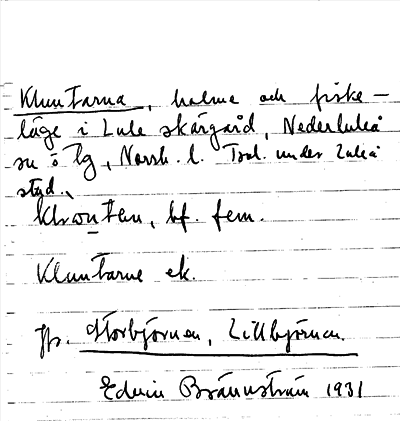 Kluntarna, holme och fiske-
läge i Lule skärgård, Nederluleå
sn o lg, Norrb. l. Tal. under Luleå
stad.
klwonten, bf. fem.
Kluntarne ek.
Jfr. Storbjörnen, Lillbjörnen.
Edvin Brännström 1931